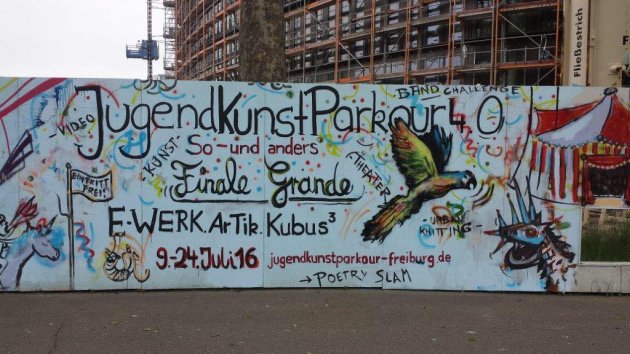 BAND CHALLENGE
JugendKunstParkour 4.0
VIDEO
KUNST
So-und anders
THEATER
EINTRITT
FREI
Finale Grande
URBAN
KNITTING
E-WERK.ArTik.Kubus³
9.-24.Juli 16
jugendkunstparkour-freiburg.de
→POETRY SLAM
Fließestrich